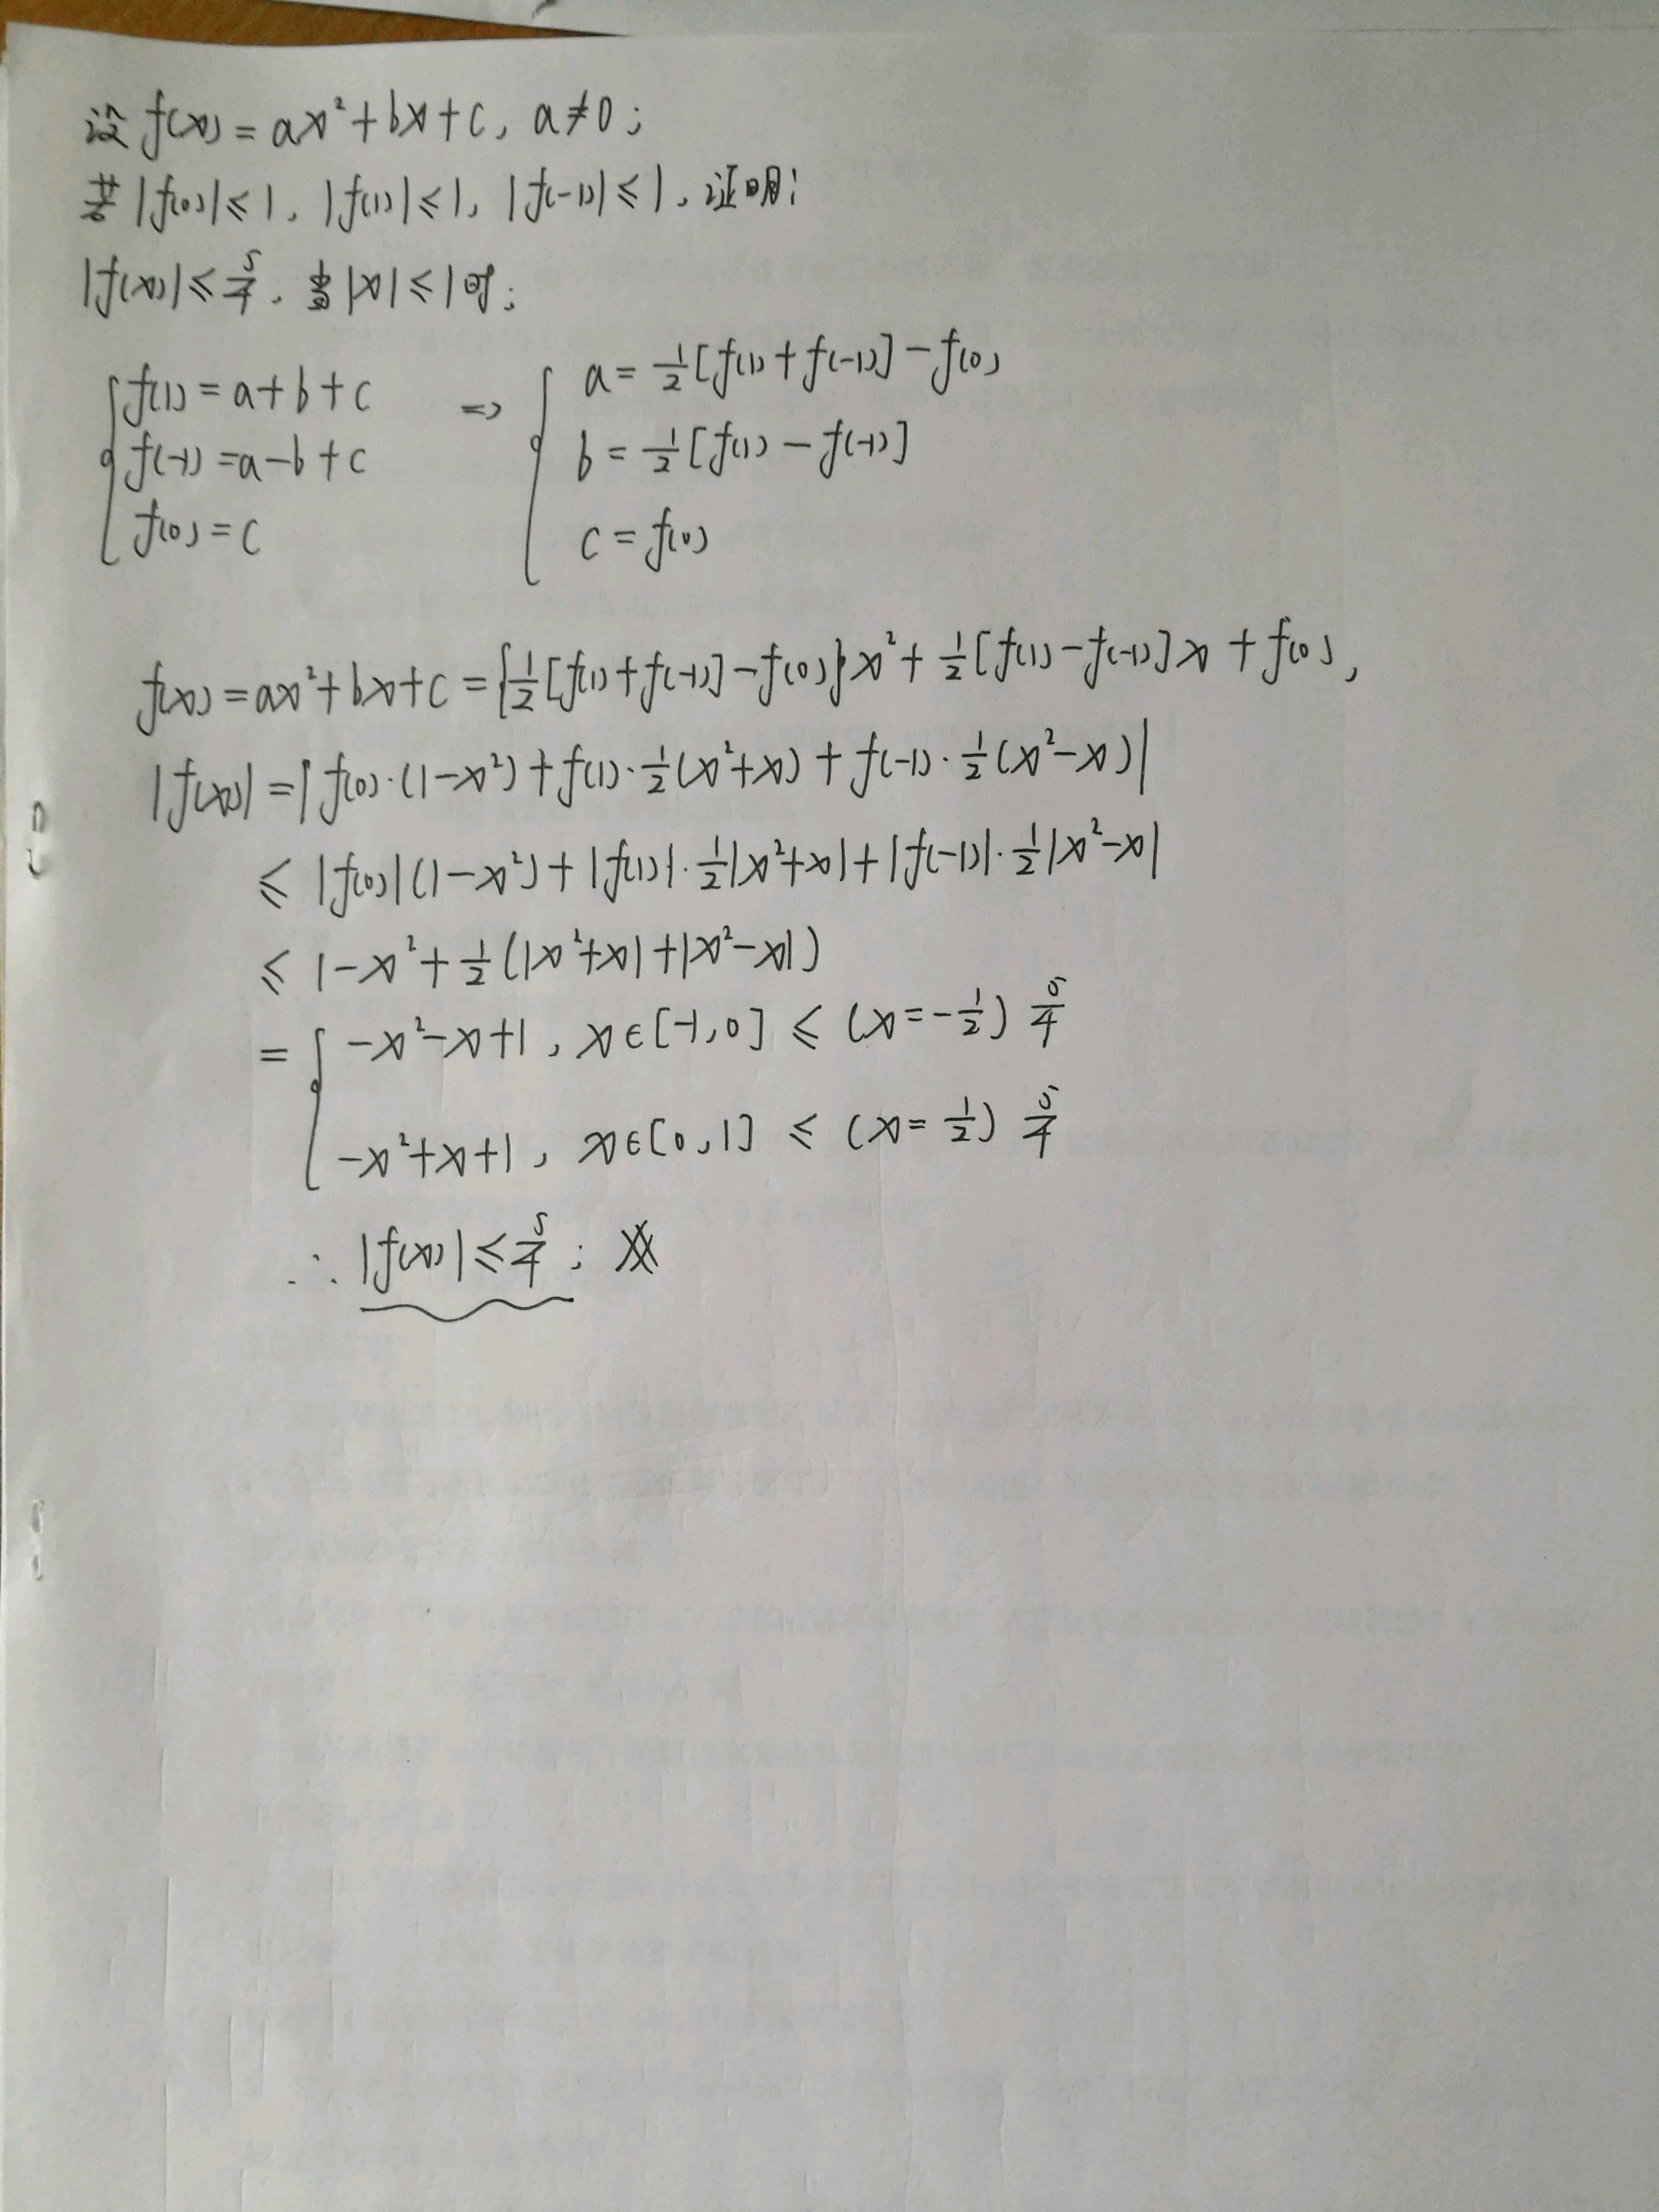 设 f(x) = ax²+bx+c, a≠0;
若 |f(0)|≤1, |f(1)|≤1, |f(-1)|≤1, 证明:
|f(x)|≤5/4, 当|x|≤1时;
{ f(1) = a+b+c => { a = 1/2[f(1)+f(-1)]-f(0)
f(-1) = a-b+c b = 1/2[f(1)-f(-1)]
f(0) = c c = f(0)
f(x) = ax²+bx+c = {1/2[f(1)+f(-1)]-f(0)}x²+1/2[f(1)-f(-1)]x+f(0),
|f(x)| = |f(0)·(1-x²)+f(1)·1/2(x²+x)+f(-1)·1/2(x²-x)|
≤ |f(0)|(1-x²)+|f(1)|·1/2|x²+x|+|f(-1)|·1/2|x²-x|
≤ 1-x²+1/2(|x²+x|+|x²-x|)
= { -x²-x+1, x∈[-1,0] ≤ (x=-1/2) 5/4
-x²+x+1, x∈[0,1] ≤ (x=1/2) 5/4
∴ |f(x)|≤5/4;